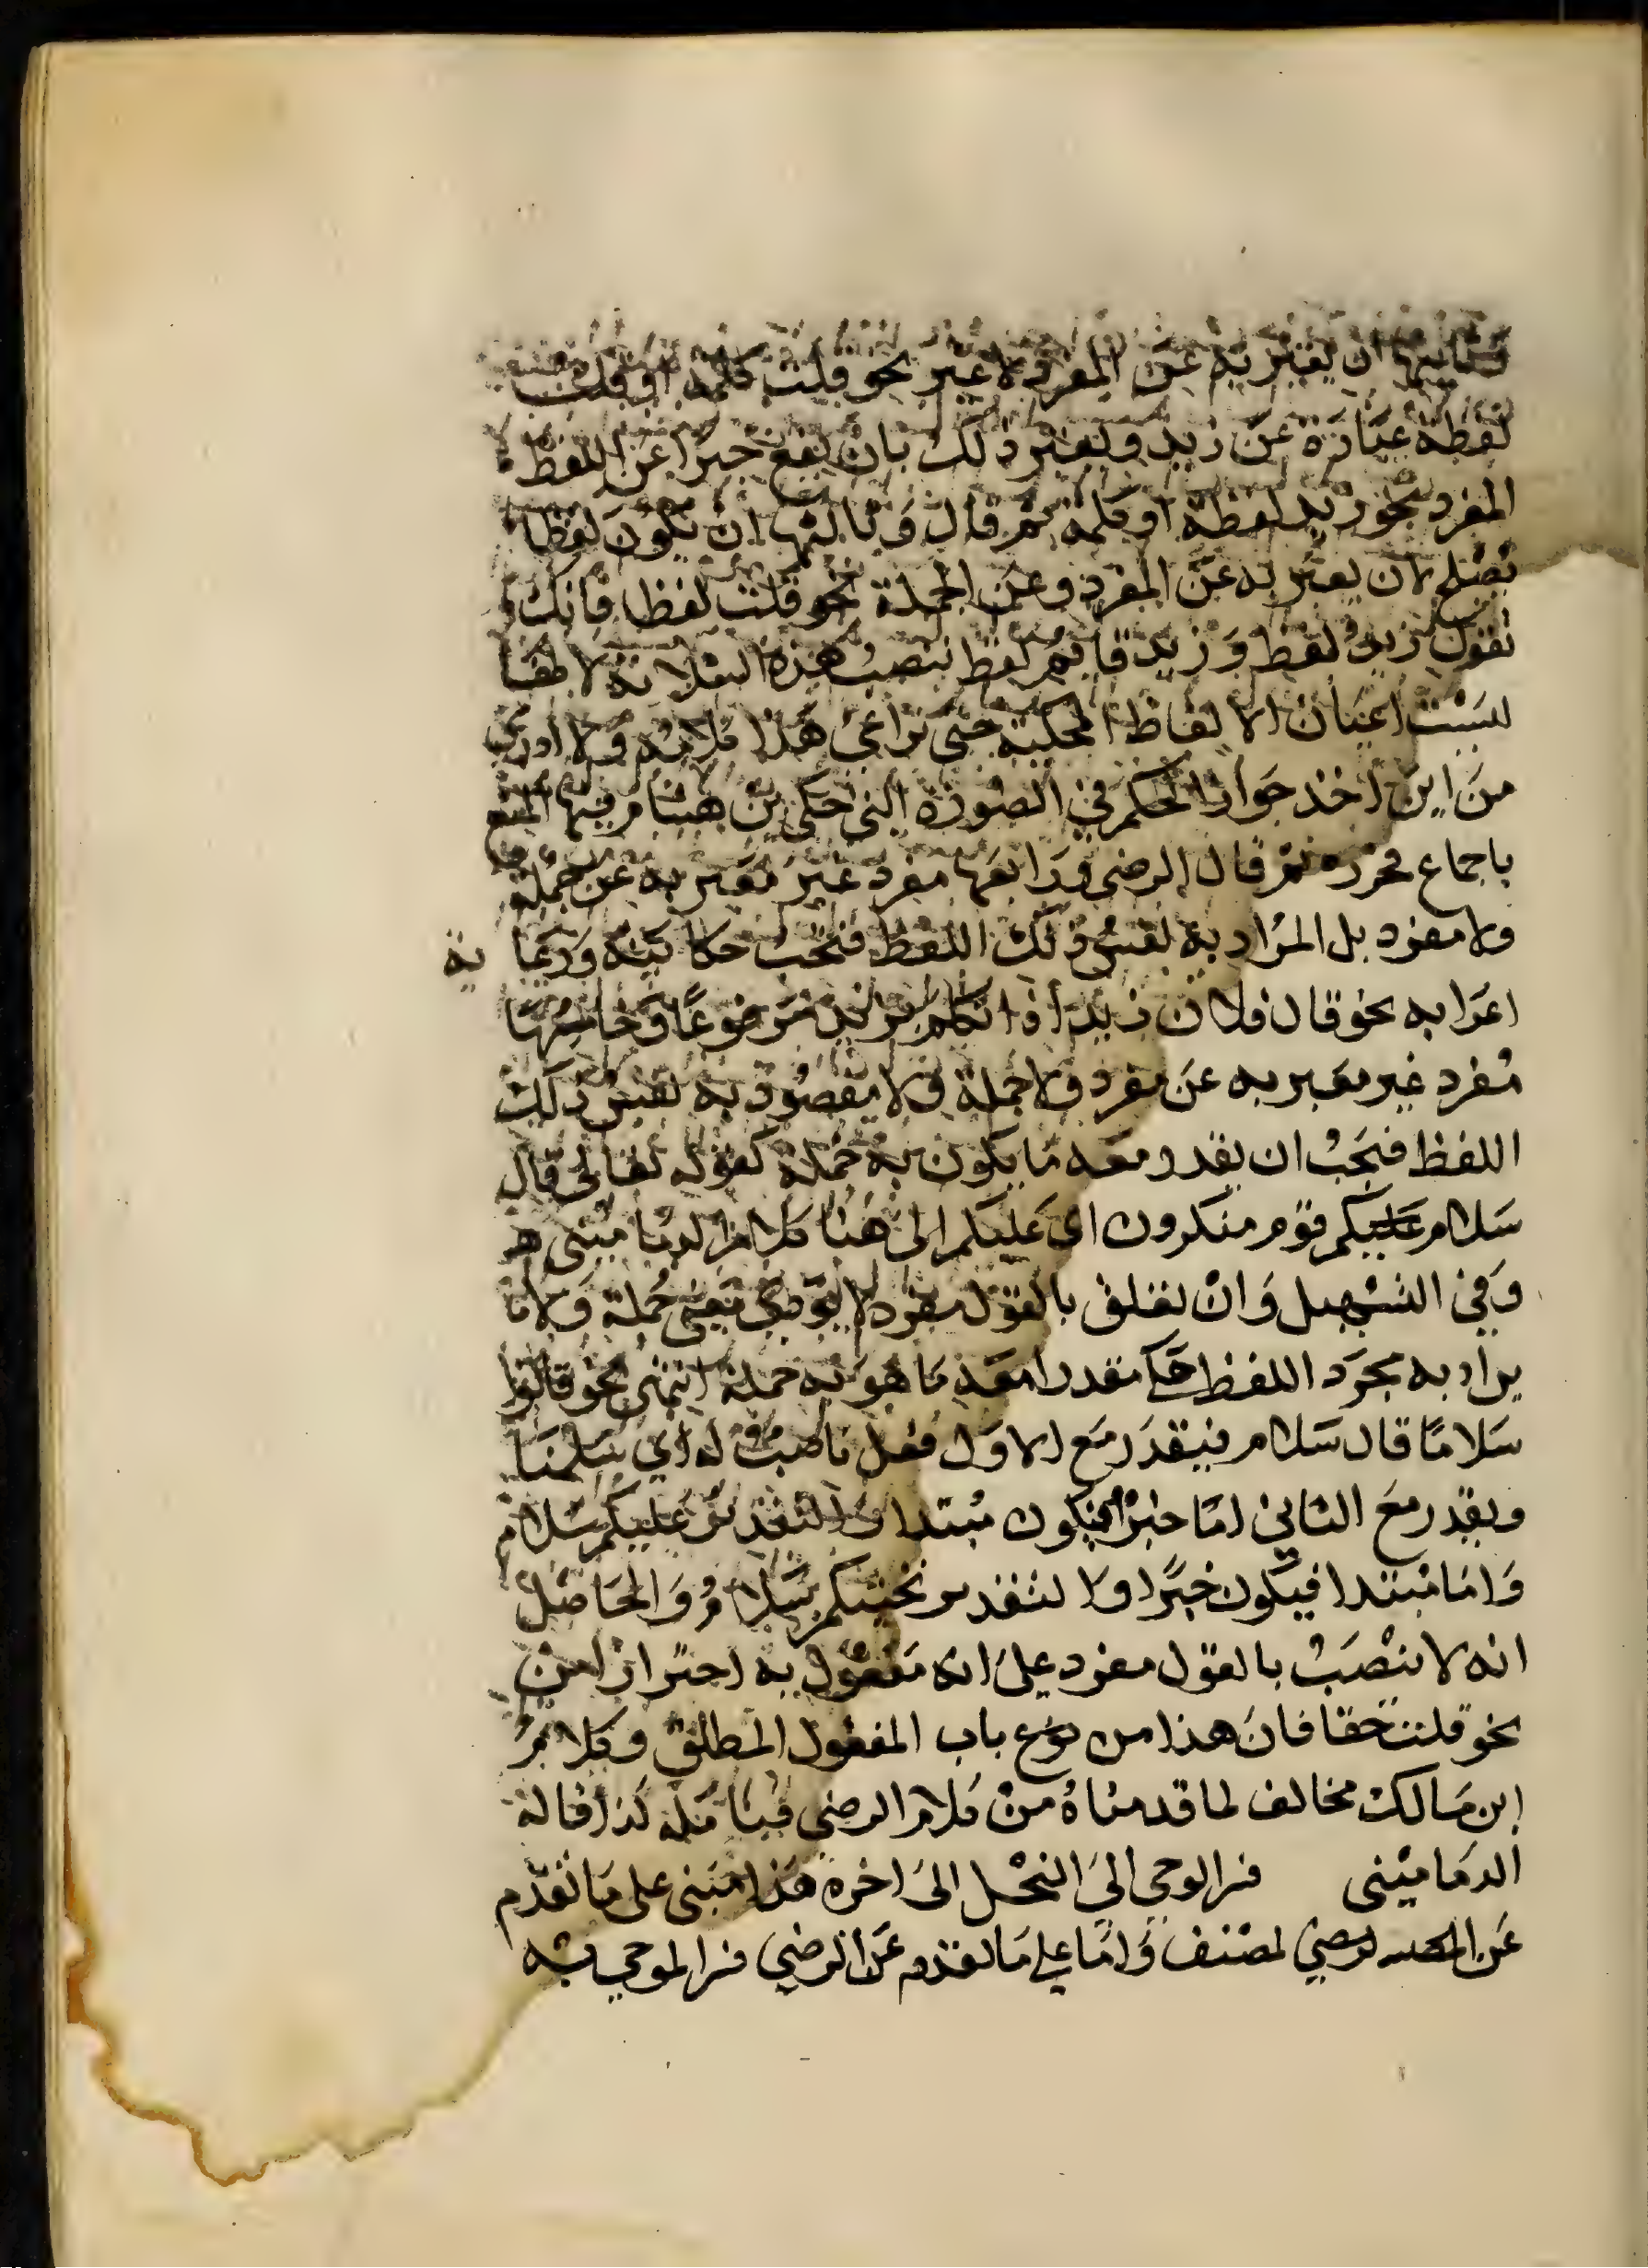 وثانيها ان يعبر به عن المفرد لا غير نحو قلت كلمة او قلت
لفظة عبارة عن زيد ويعتبر ذلك بان يقع خبرا عن اللفظ
المفرد نحو زيد لفظة او كلمة ثم قال وثالثها ان يكون لفظا
يصلح لان يعبر به عن المفرد وعن الجملة نحو قلت لفظا فانك
تقول زيد لفظ وزيد قائم لفظ ينصب هذه الثلاثة لانها
ليست اعيان الالفاظ المحكية حتى تراعى هذا كلامه ولا ادري
من اين اخذ جواز الحكم في الصورة التي حكى بن هشام فيها المنع
باجماع فحرره ثم قال الرضي ورابعها مفرد غير معبر به عن جملة
ولا مفرد بل المراد به نفس ذلك اللفظ فتجب حكايته ورعاية
اعرابه نحو قال فلان زيد اذا تكلم بزيد مرفوعا وخامسها
مفرد غير معبر به عن مفرد ولا جملة ولا مقصود به نفس ذلك
اللفظ فيجب ان يقدر معه ما يكون به جملة كقوله تعالى قال
سلام عليكم قوم منكرون اي عليكم الى هنا كلام الدماميني
وفي التسهيل وان تعلق بالقول مفرد لا يؤدي معنى جملة ولا
يراد به مجرد اللفظ حكي مقدرا معه ما هو به جملة انتهى نحو قالوا
سلاما قال سلام فيقدر مع الاول فعل ناصب له اي سلمنا
ويقدر مع الثاني اما خبرا فيكون مبتدا والتقدير عليكم سلام
واما مبتدا فيكون خبرا والتقدير تحيتكم سلام والحاصل
انه لا ينصب بالقول مفرد على انه مفعول به احترازا من
نحو قلت حقا فان هذا من نوع باب المفعول المطلق وكلام
ابن مالك مخالف لما قدمناه من كلام الرضي فتامله كذا قاله
الدماميني فرالوحي الى النحل الى اخره هذا مبنى على ما تقدم
عن لمصنف واما على ما تقدم عن الرضي فرالموحي به